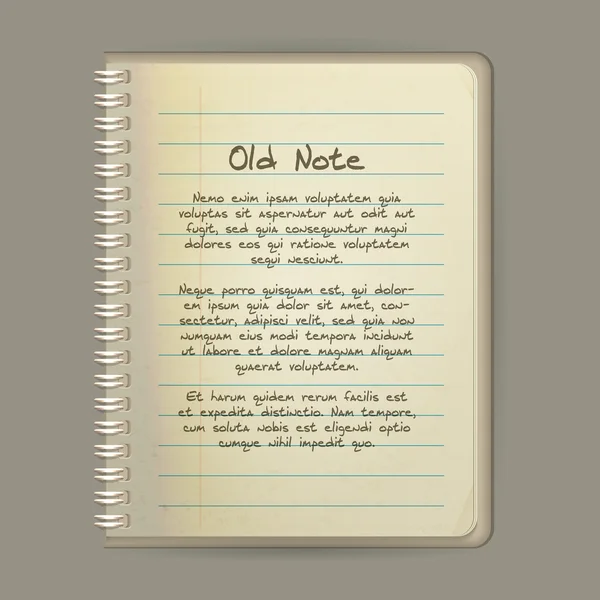 Old Note
Nemo enim ipsam voluptatem quia
voluptas sit aspernatur aut odit aut
fugit, sed quia consequuntur magni
dolores eos qui ratione voluptatem
sequi nesciunt.
Neque porro quisquam est, qui dolor-
em ipsum quia dolor sit amet, con-
sectetur, adipisci velit, sed quia non
numquam eius modi tempora incidunt
ut labore et dolore magnam aliquam
quaerat voluptatem.
Et harum quidem rerum facilis est
et expedita distinctio. Nam tempore,
cum soluta nobis est eligendi optio
cumque nihil impedit quo.